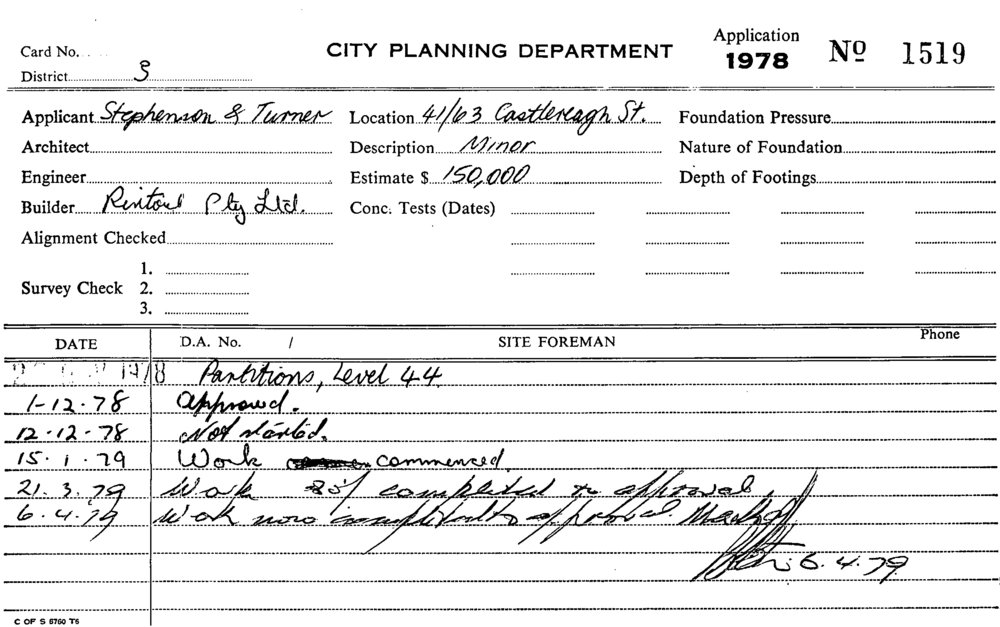 Card No.
CITY PLANNING DEPARTMENT
Application
1978 Nº 1519
District S
Applicant Stephenson & Turner Location 41/63 Castlereagh St. Foundation Pressure
Architect Description Minor Nature of Foundation
Engineer Estimate $ 150,000 Depth of Footings
Builder Rintoul Pty Ltd. Conc. Tests (Dates)
Alignment Checked
1.
Survey Check 2.
3.
DATE D.A. No. / SITE FOREMAN Phone
1978 Partitions, Level 44
1-12-78 Approved.
12-12-78 Not started.
15.1.79 Work commenced.
21.3.79 Work 80% completed to approval.
6.4.79 Work now completed to approval.
6.4.79
C OF S 8760 T6